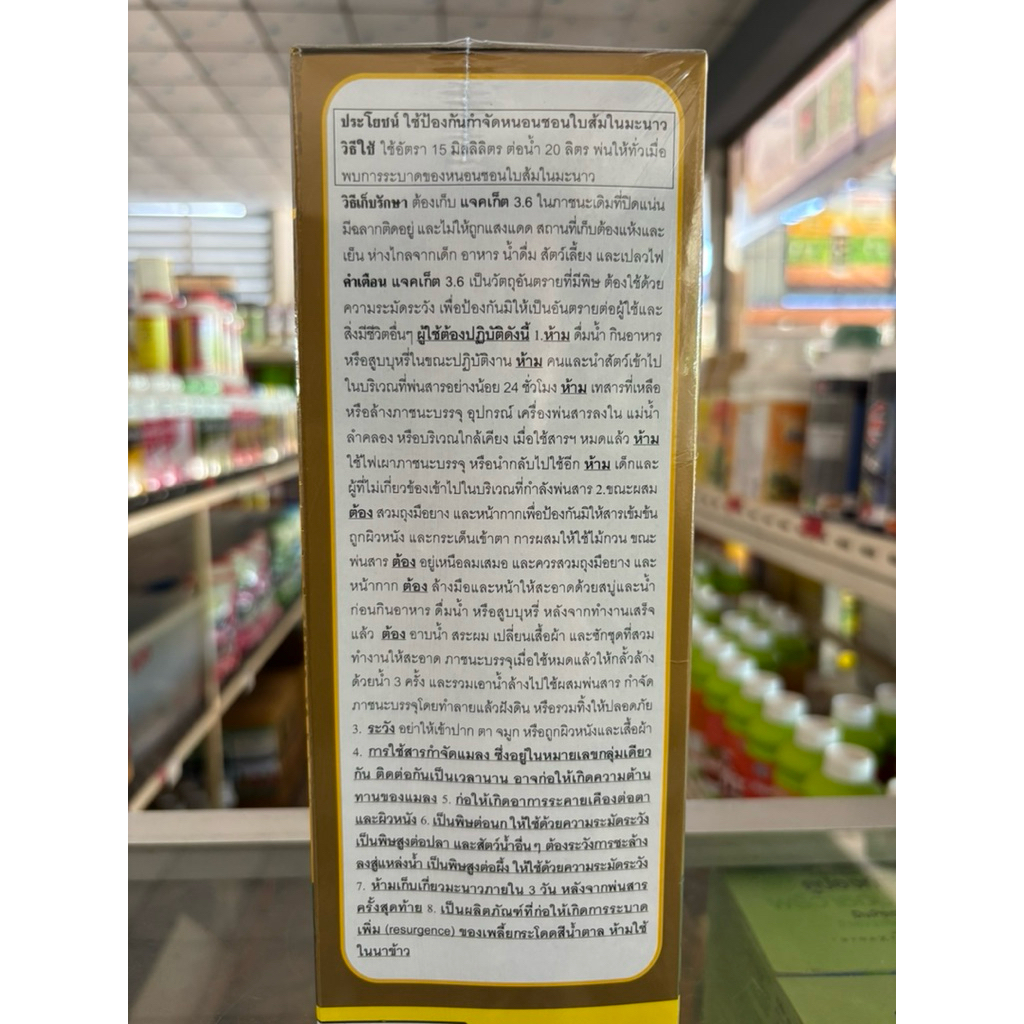 ประโยชน์ ใช้ป้องกันกำจัดหนอนชอนใบส้มในมะนาว
วิธีใช้ ใช้อัตรา 15 มิลลิลิตร ต่อน้ำ 20 ลิตร พ่นให้ทั่วเมื่อ
พบการระบาดของหนอนชอนใบส้มในมะนาว
วิธีเก็บรักษา ต้องเก็บ แจคเก็ต 3.6 ในภาชนะเดิมที่ปิดแน่น
มีฉลากติดอยู่ และไม่ให้ถูกแสงแดด สถานที่เก็บต้องแห้งและ
เย็น ห่างไกลจากเด็ก อาหาร น้ำดื่ม สัตว์เลี้ยง และเปลวไฟ
คำเตือน แจคเก็ต 3.6 เป็นวัตถุอันตรายที่มีพิษ ต้องใช้ด้วย
ความระมัดระวัง เพื่อป้องกันมิให้เป็นอันตรายต่อผู้ใช้และ
สิ่งมีชีวิตอื่นๆ ผู้ใช้ต้องปฏิบัติดังนี้ 1.ห้าม ดื่มน้ำ กินอาหาร
หรือสูบบุหรี่ในขณะปฏิบัติงาน ห้าม คนและนำสัตว์เข้าไป
ในบริเวณที่พ่นสารอย่างน้อย 24 ชั่วโมง ห้าม เทสารที่เหลือ
หรือล้างภาชนะบรรจุ อุปกรณ์ เครื่องพ่นสารลงใน แม่น้ำ
ลำคลอง หรือบริเวณใกล้เคียง เมื่อใช้สารฯ หมดแล้ว ห้าม
ใช้ไฟเผาภาชนะบรรจุ หรือนำกลับไปใช้อีก ห้าม เด็กและ
ผู้ที่ไม่เกี่ยวข้องเข้าไปในบริเวณที่กำลังพ่นสาร 2.ขณะผสม
ต้อง สวมถุงมือยาง และหน้ากากเพื่อป้องกันมิให้สารเข้มข้น
ถูกผิวหนัง และกระเด็นเข้าตา การผสมให้ใช้ไม้กวน ขณะ
พ่นสาร ต้อง อยู่เหนือลมเสมอ และควรสวมถุงมือยาง และ
หน้ากาก ต้อง ล้างมือและหน้าให้สะอาดด้วยสบู่และน้ำ
ก่อนกินอาหาร ดื่มน้ำ หรือสูบบุหรี่ หลังจากทำงานเสร็จ
แล้ว ต้อง อาบน้ำ สระผม เปลี่ยนเสื้อผ้า และซักชุดที่สวม
ทำงานให้สะอาด ภาชนะบรรจุเมื่อใช้หมดแล้วให้กลั้วล้าง
ด้วยน้ำ 3 ครั้ง และรวมเอาน้ำล้างไปใช้ผสมพ่นสาร กำจัด
ภาชนะบรรจุโดยทำลายแล้วฝังดิน หรือรวมทิ้งให้ปลอดภัย
3. ระวัง อย่าให้เข้าปาก ตา จมูก หรือถูกผิวหนังและเสื้อผ้า
4. การใช้สารกำจัดแมลง ซึ่งอยู่ในหมายเลขกลุ่มเดียว
กัน ติดต่อกันเป็นเวลานาน อาจก่อให้เกิดความต้าน
ทานของแมลง 5. ก่อให้เกิดอาการระคายเคืองต่อตา
และผิวหนัง 6. เป็นพิษต่อนก ให้ใช้ด้วยความระมัดระวัง
เป็นพิษสูงต่อปลา และสัตว์น้ำอื่นๆ ต้องระวังการชะล้าง
ลงสู่แหล่งน้ำ เป็นพิษสูงต่อผึ้ง ให้ใช้ด้วยความระมัดระวัง
7. ห้ามเก็บเกี่ยวมะนาวภายใน 3 วัน หลังจากพ่นสาร
ครั้งสุดท้าย 8. เป็นผลิตภัณฑ์ที่ก่อให้เกิดการระบาด
เพิ่ม (resurgence) ของเพลี้ยกระโดดสีน้ำตาล ห้ามใช้
ในนาข้าว